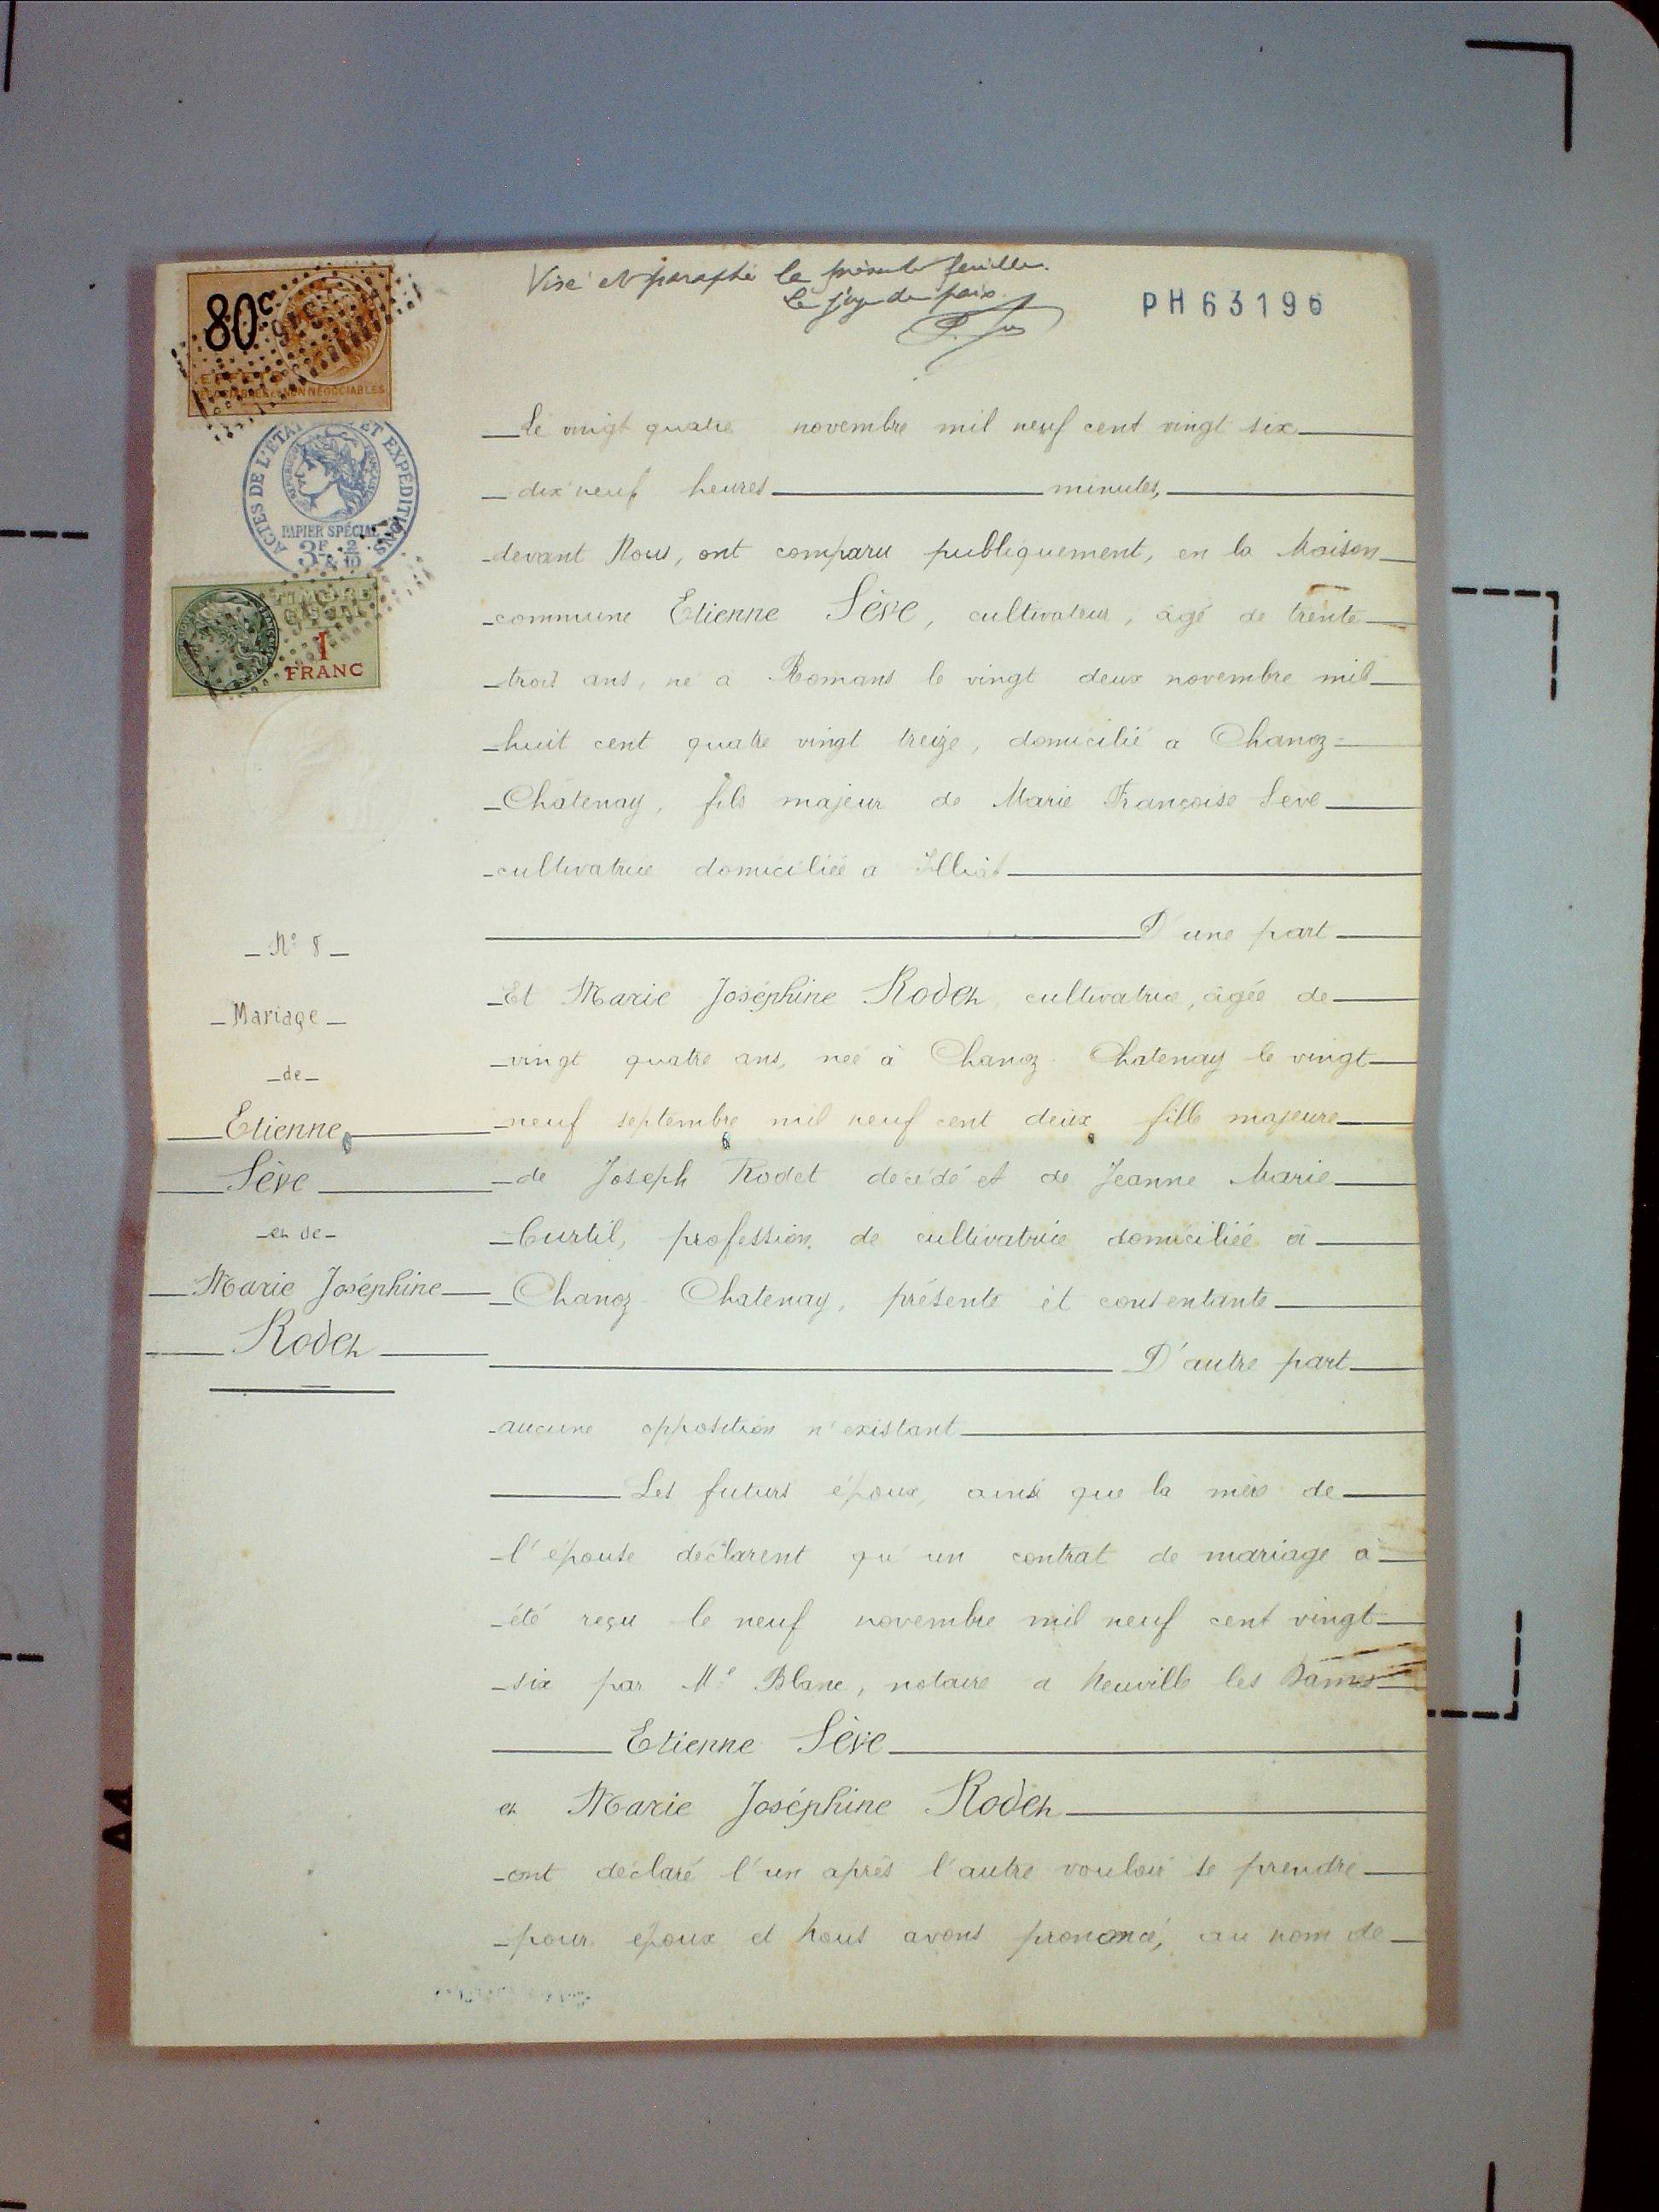 Visé et paraphé la présente feuille.
Le juge de paix
PH63196
80c
EFFETS
NÉGOCIABLES et NON NÉGOCIABLES
ACTES DE L'ÉTAT ET EXPÉDITIONS
RÉPUBLIQUE FRANÇAISE
PAPIER SPÉCIAL
3F & 2/10
TIMBRE
1
FRANC
Le vingt quatre novembre mil neuf cent vingt six
dix neuf heures minutes,
devant Nous, ont comparu publiquement, en la Maison
commune Etienne Sève, cultivateur, âgé de trente
trois ans, né a Romans le vingt deux novembre mil
huit cent quatre vingt treize, domicilié a Chanoz-
Châtenay, fils majeur de Marie Françoise Seve
cultivatrice domiciliée a Illiat
D'une part
Et Marie Joséphine Rodet cultivatrice, âgée de
vingt quatre ans, née à Chanoz-Chatenay le vingt
neuf septembre mil neuf cent deux fille majeure
de Joseph Rodet décédé et de Jeanne Marie
Curtil, profession de cultivatrice domiciliée à
Chanoz Chatenay, présente et consentante
D'autre part
aucune opposition n'existant
Les futurs époux, ainsi que la mère de
l'épouse déclarent qu'un contrat de mariage a
été reçu le neuf novembre mil neuf cent vingt
six par Me Blanc, notaire a Neuville les Dames
Etienne Sève
et Marie Joséphine Rodet
ont déclaré l'un après l'autre vouloir se prendre
pour époux et Nous avons prononcé, au nom de
N° 8
Mariage
de
Etienne
Sève
et de
Marie Joséphine
Rodet
A4